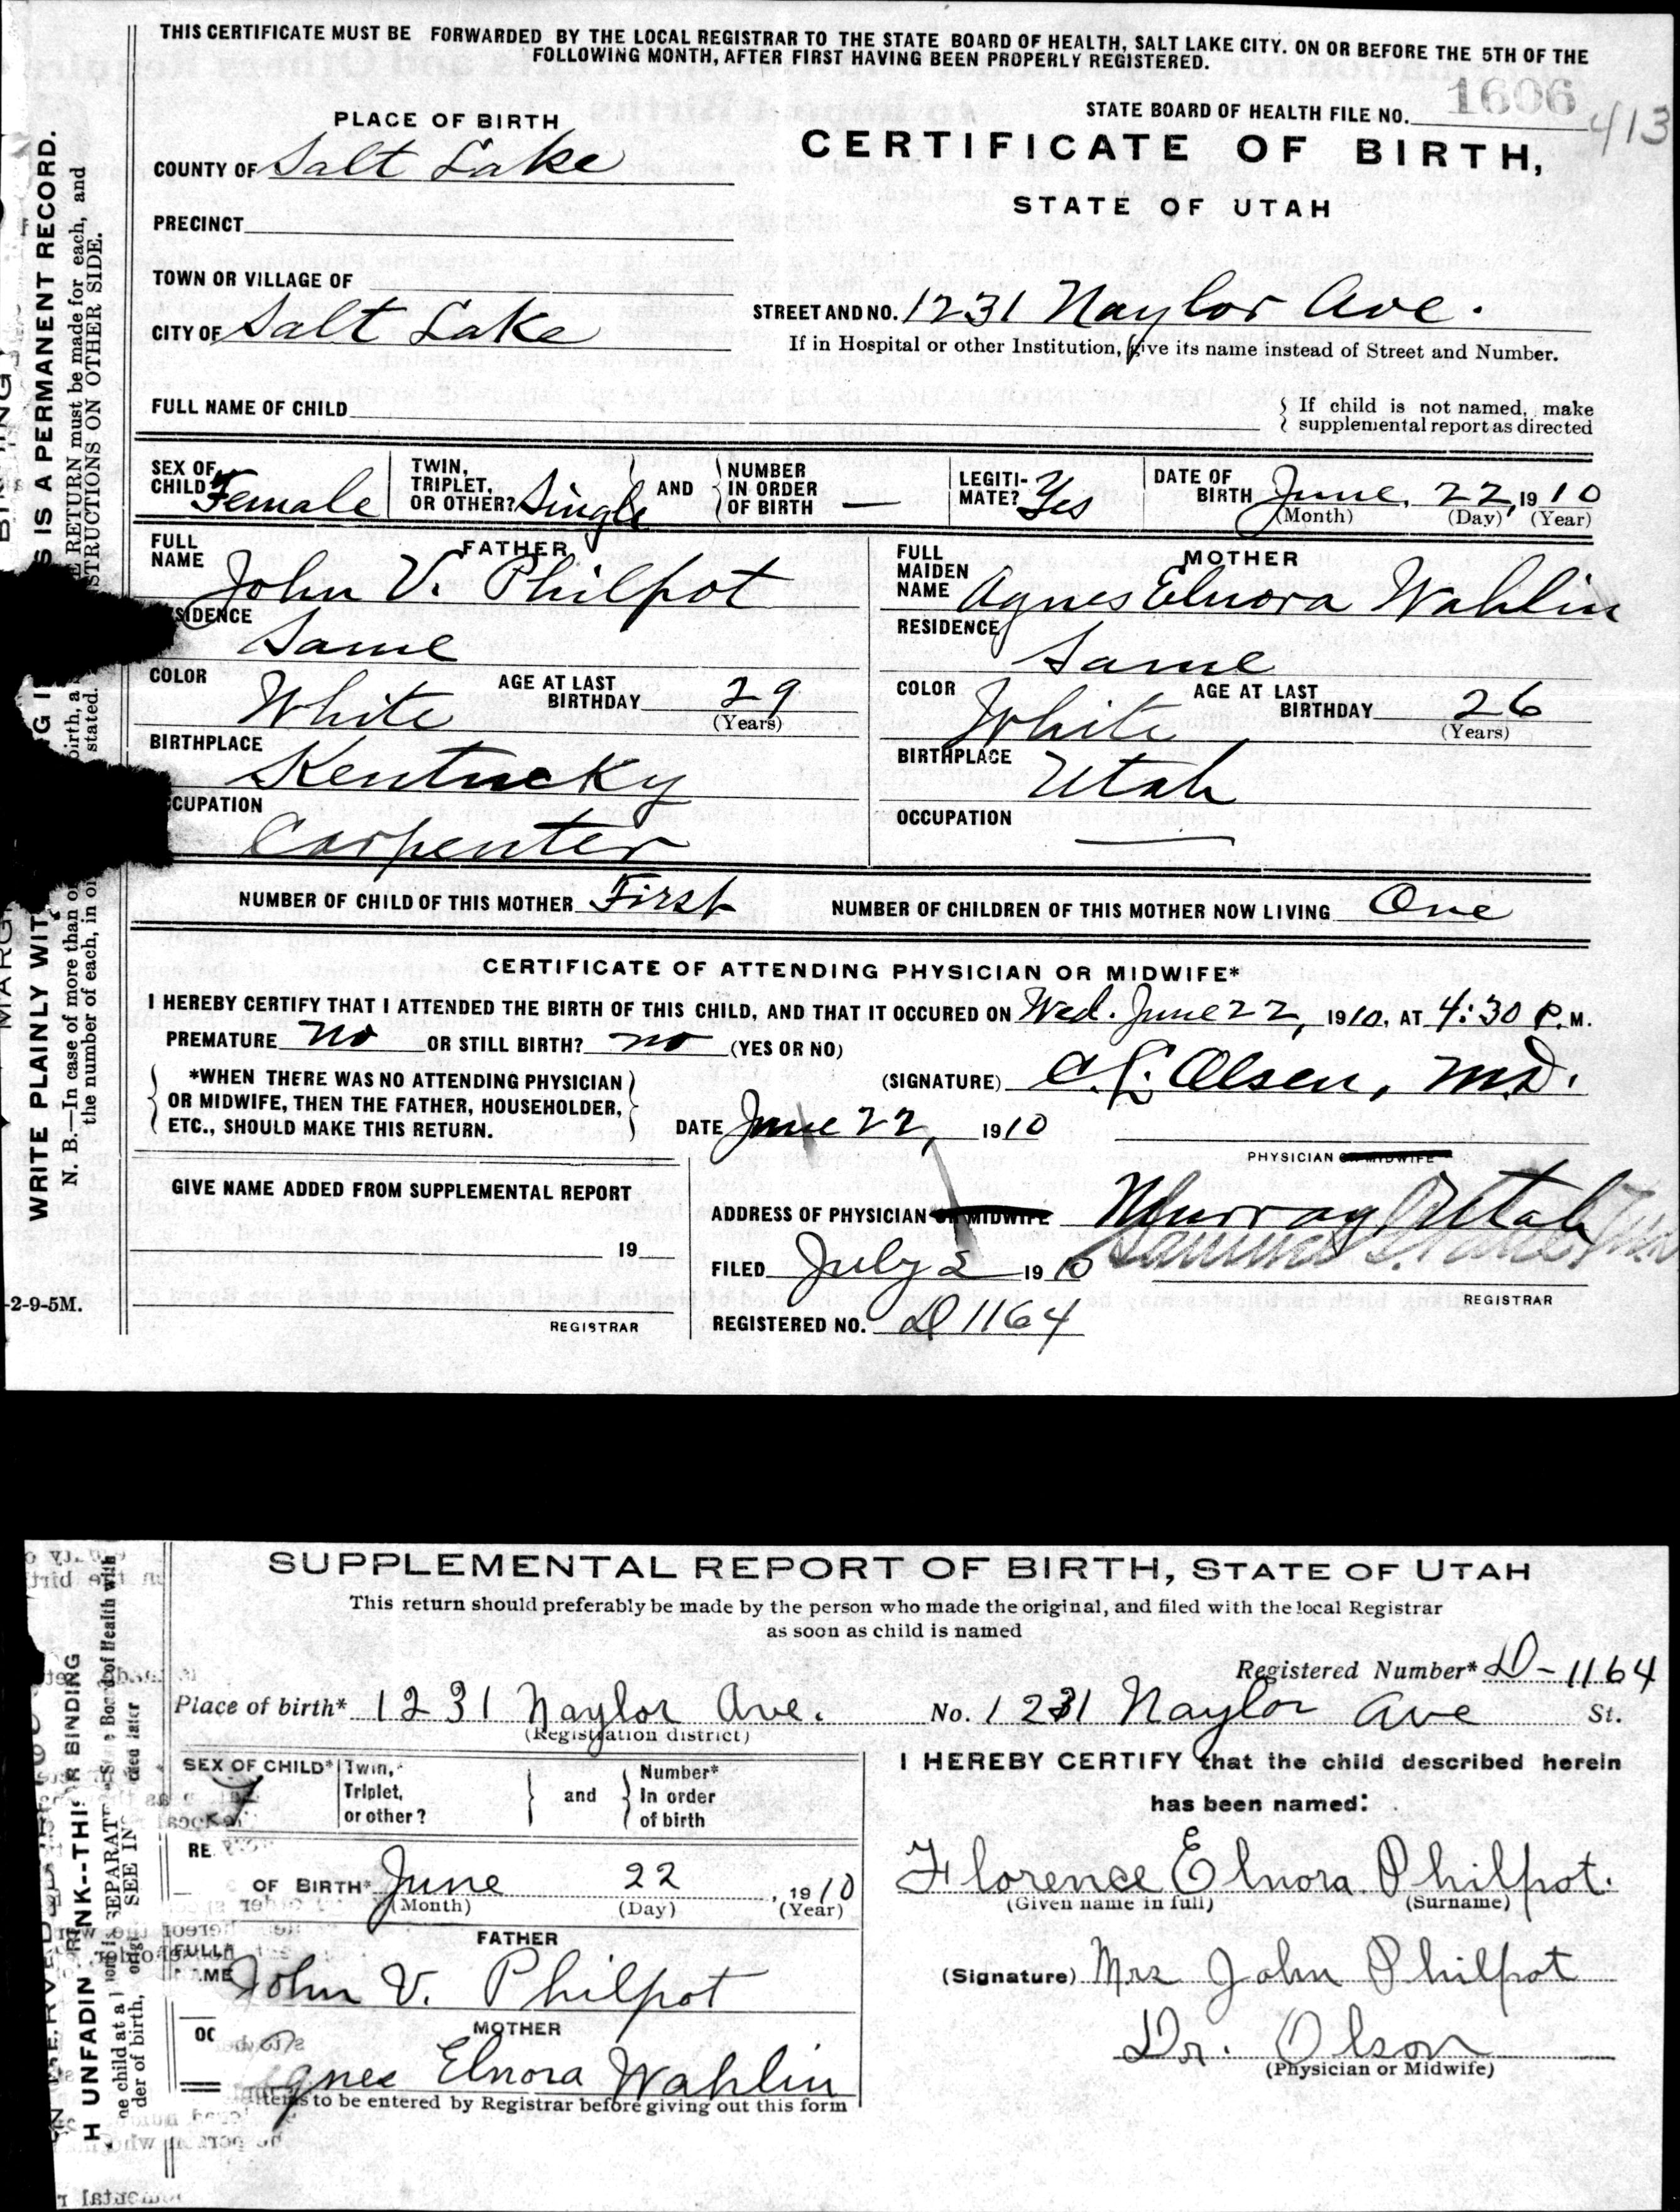 THIS CERTIFICATE MUST BE FORWARDED BY THE LOCAL REGISTRAR TO THE STATE BOARD OF HEALTH, SALT LAKE CITY. ON OR BEFORE THE 5TH OF THE
FOLLOWING MONTH, AFTER FIRST HAVING BEEN PROPERLY REGISTERED.
STATE BOARD OF HEALTH FILE NO. 1606 413
PLACE OF BIRTH
CERTIFICATE OF BIRTH,
COUNTY OF Salt Lake
STATE OF UTAH
PRECINCT
TOWN OR VILLAGE OF
STREET AND NO. 1231 Naylor Ave.
CITY OF Salt Lake
If in Hospital or other Institution, give its name instead of Street and Number.
FULL NAME OF CHILD
If child is not named, make
supplemental report as directed
SEX OF CHILD Female
TWIN, TRIPLET, OR OTHER? Single
AND
NUMBER IN ORDER OF BIRTH —
LEGITI-MATE? Yes
DATE OF BIRTH June, 22, 1910
(Month) (Day) (Year)
FATHER
FULL NAME John V. Philpot
SIDENCE Same
COLOR White
AGE AT LAST BIRTHDAY 29
(Years)
BIRTHPLACE Kentucky
CUPATION Carpenter
MOTHER
FULL MAIDEN NAME Agnes Elnora Wahlin
RESIDENCE Same
COLOR White
AGE AT LAST BIRTHDAY 26
(Years)
BIRTHPLACE Utah
OCCUPATION —
NUMBER OF CHILD OF THIS MOTHER First
NUMBER OF CHILDREN OF THIS MOTHER NOW LIVING One
CERTIFICATE OF ATTENDING PHYSICIAN OR MIDWIFE*
I HEREBY CERTIFY THAT I ATTENDED THE BIRTH OF THIS CHILD, AND THAT IT OCCURED ON Wed. June 22, 1910, AT 4:30 P.M.
PREMATURE no OR STILL BIRTH? no (YES OR NO)
*WHEN THERE WAS NO ATTENDING PHYSICIAN
OR MIDWIFE, THEN THE FATHER, HOUSEHOLDER,
ETC., SHOULD MAKE THIS RETURN.
(SIGNATURE) C.L. Olsen, M.D.
DATE June 22, 1910
PHYSICIAN OR MIDWIFE
GIVE NAME ADDED FROM SUPPLEMENTAL REPORT
19
REGISTRAR
ADDRESS OF PHYSICIAN OR MIDWIFE Murray Utah
FILED July 2 1910
REGISTRAR
REGISTERED NO. D 1164
2-9-5M.
S IS A PERMANENT RECORD.
E RETURN must be made for each, and
STRUCTIONS ON OTHER SIDE.
WRITE PLAINLY WIT
N. B.—In case of more than
the number of each, in
birth, a
stated.
SUPPLEMENTAL REPORT OF BIRTH, STATE OF UTAH
This return should preferably be made by the person who made the original, and filed with the local Registrar
as soon as child is named
Registered Number* D-1164
Place of birth* 1231 Naylor Ave. No. 1231 Naylor Ave St.
(Registration district)
SEX OF CHILD* F
Twin, Triplet, or other?
and
Number* In order of birth
RE
OF BIRTH* June 22, 1910
(Month) (Day) (Year)
FATHER
FULL* AME John V. Philpot
MOTHER
Agnes Elnora Wahlin
OC
items to be entered by Registrar before giving out this form
I HEREBY CERTIFY that the child described herein
has been named:
Florence Elnora Philpot.
(Given name in full) (Surname)
(Signature) Mrs John Philpot
Dr. Olson
(Physician or Midwife)
R BINDING
H UNFADIN
INK--THI
Board of Health with
SEE IN
ne child at a
der of birth,